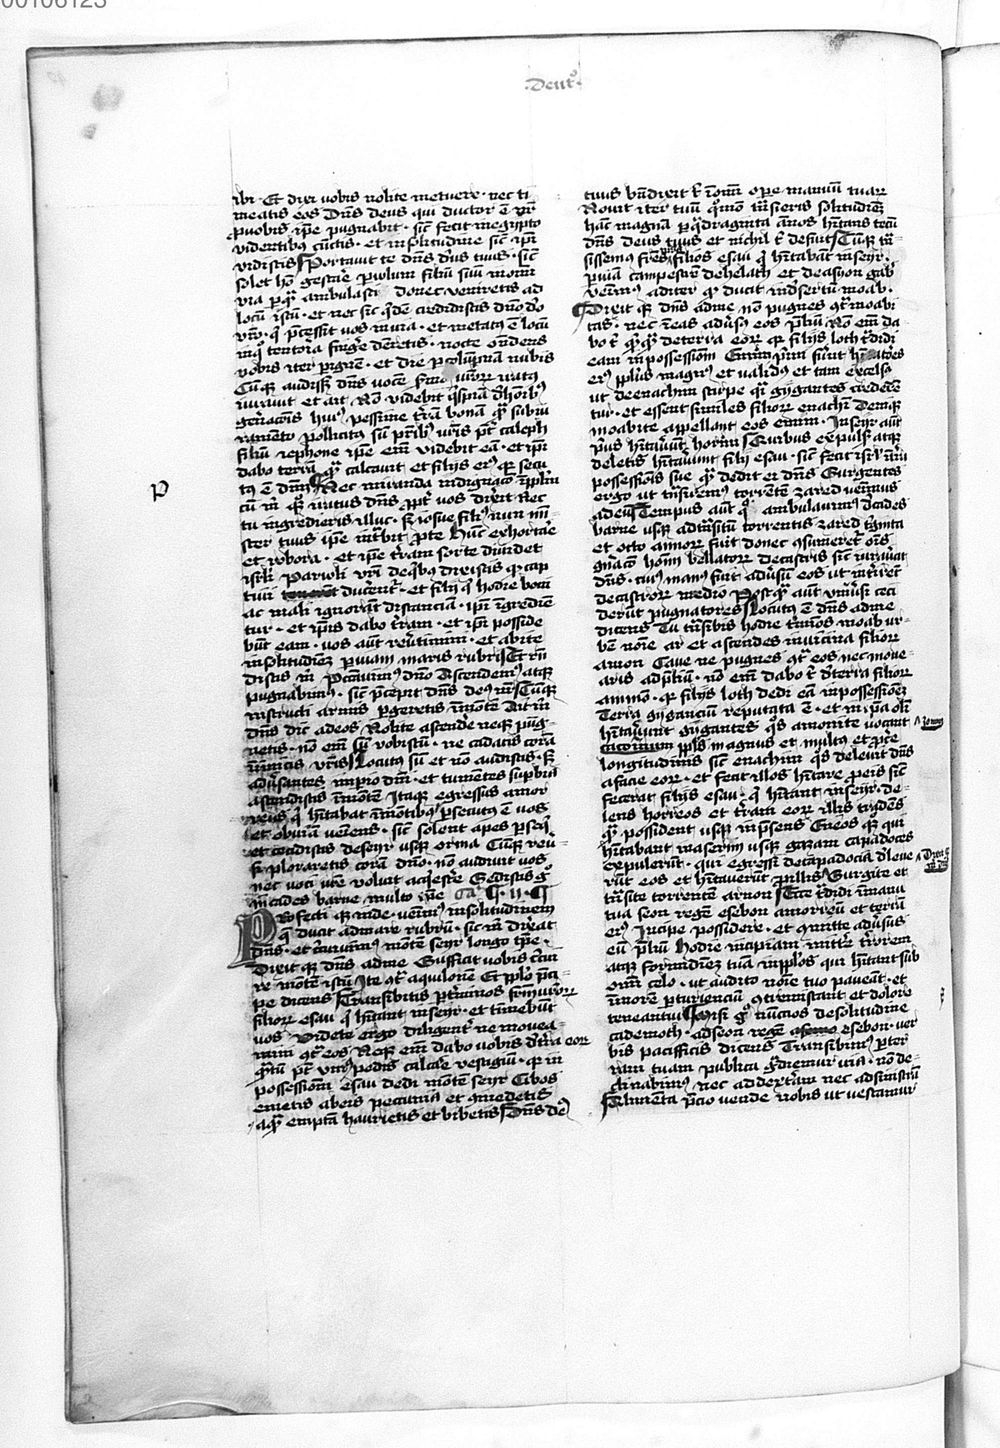 00106123
·Deut°·
ibi · Et dixi vobis nolite metuere · nec ti
meatis eos Dn̄s deus qui ductor ē vr̄
ꝓ vobis ip̄e pugnabit · sic̄ fecit in egypto
videntibꝰ cūctis · et in solitudine sic̄ ip̄i
vidistis Portavit te dn̄s dꝰs tuus · sic̄
solet hō gestare ꝑvulum filiū suū in om̄i
via ꝑ quā ambulastis donec veniretis ad
locū istū · et nec sic̄ qⁱdē credidistis dn̄o dō
vr̄o · qⁱ p̄cessit vos in via · et metatꝰ ē locū
in qᵒ tentoria figere deberetis · nocte ondens
vobis iter ꝑ ignē · et die ꝑ colūpnam nubis
Cūqꝫ audisset dn̄s vocē ẜmonū vr̄oꝝ iratꝰ
iuravit et ait Nō videbit qⁱspiā de hoībꝰ
gen̄acōis huiꝰ pessime terrā bonā quā sub iu
ramēto pollicitus sū pr̄ibꝰ vr̄is pt̄ caleph
filiū iephone ip̄e em̄ videbit eā · et ip̄i
dabo terrā quā calcavit et filijs eiꝰ qꝛ secu
tꝰ ē dn̄m Nec miranda indignacō in ppl̄m
cū m̄ qꝫ iratus dn̄s ꝓpt̄ vos dixerit Nec
tu ingredieris illuc · sꝫ iosue filiꝰ nun mi
ster tuus ip̄e int̄bit ꝓ te Hūc exhortare
et robora · et ip̄e terram sorte dividet
isrl̄i Parvuli vr̄i de qⁱbꝰ dixistis qꝛ cap
tivi ducerent̄ · et filij qⁱ hodie boni
ac mali ignorant distanciam · ip̄i īgredien
tur · et ip̄is dabo terram · et ip̄i posside
būt eam · vos aūt rev̄timini · et abite
in solitudinē ꝑ viam maris rubri Et rn̄
distis m̄ Peccavimꝰ dn̄o Ascendemꝰ atqꝫ
pugnabimꝰ · sic̄ p̄cepit dn̄s deꝰ nr̄ Cūqꝫ
instructi armis ꝑgeretis in montē Ait m̄
dn̄s dic ad eos Nolite ascendere neqꝫ pug
netis · nō em̄ sū vobiscū · ne cadatis corā
inimicis vr̄is Locutꝰ sū et nō audistis · sꝫ
adv̄santes imꝑio dn̄i · et tumentes suꝑbia
ascendistis in montē Itaqꝫ egressus amor
reus qⁱ habitabat in montibꝰ ꝑsecutꝰ ē vos
et obviam veniens · sic̄ solent apes ꝑseqⁱ
et cecidit de seyr usqꝫ orma Cūqꝫ rev̄
si ploraretis corā dn̄o · nō audivit vos
nec voci vr̄e voluit acqⁱescere Sedistis gᵒ
in cades barne multo tp̄e Ca · ¶ · II · ¶
Profecti qꝫ inde venimꝰ in solitudinem
que ducit ad mare rubrū · sic̄ m̄ dixerat
dn̄s · et circuivimꝰ montē seyr longo tp̄e ·
Dixit qꝫ dn̄s ad me Sufficit vobis circui
re montē istū Ite cont̄ aquilonē Et pplō p̄ci
pe dicens Transibitis ꝑ t̄minos fratrū vr̄oꝝ
filioꝝ esau qⁱ habitant in seyr · et timebūt
vos Videte ergo diligent̄ ne movea
mini cont̄ eos Neqꝫ em̄ dabo vobis de terra eoꝝ
qᵃntū pt̄ unius pedis calcare vestigiū · qꝛ in
possessionē esau dedi montē seyr Cibos
emetis ab eis pecunia et comedetis
aquā emptā haurietis et bibetis Dn̄s deꝰ
tuus bn̄dixit t̄ in om̄i oꝑe manuū tuaꝝ
Novit iter tuū quomō transieris solitudinē
hāc magnā ꝑ quadraginta annos habitans tecū
dn̄s deus tuus et nichil t̄ defuit Cūqꝫ tn̄
sissemꝰ fr̄es nr̄os filios esau qⁱ habitabāt in seyr ·
ꝑ viā campestrē de helath et de asyongab̄
venimꝰ ad iter qᵒ ducit in desertū moab ·
¶ Dixit qꝫ dn̄s ad me nō pugnes cont̄ moabi
tas · nec ineas adv̄sꝰ eos p̄liū Nō em̄ da
bo t̄ quicqᵃ de terra eoꝝ qꝛ filijs loth t̄didi
eam in possessionē Emim pⁱmi fuerūt habitatores
eiꝰ pplūs magnꝰ et validꝰ et tam excelsꝰ
ut de enachim stirpe qᵃsi gygantes crederē
tur · et essent similes filioꝝ enachī Deniqꝫ
moabite appellant eos emim · In seyr aūt
pⁱus habitaverūt horrim Quibus expulsꝭ atqꝫ
deletis habitaverūt filij esau · sic̄ fecit isrl̄ in terra
possessionis sue quā dedit ei dn̄s Surgentes
ergo ut transiremꝰ torrentē zared venimus
ad eū Tempus aūt qᵒ ambulavimꝰ de cades
barne usqꝫ ad transitū torrentis zared triginta
et octo annoꝝ fuit donec consumeret̄ om̄is
gen̄acō hoīm bellatoꝝ de castris sic̄ iuraverat
dn̄s · cuiꝰ manꝰ fuit adv̄sū eos ut interirēt
de castroꝝ medio Postqᵃ aūt univ̄si ceci
derunt pugnatores Locutꝰ ē dn̄s ad me
dicens Tu transibis hodie t̄minos moab ur
bē noīe ar et accedens in vicina filioꝝ
amon Cave ne pugnes cont̄ eos nec move
aris ad p̄liū · nō em̄ dabo t̄ de terra filioꝝ
ammon · qꝛ filijs loth dedi eā in possessionē
Terra gygancium reputata ē · et in ip̄a olī
habitaverūt gygantes qᵒs amonite vocant
ppl̄s magnus et multꝰ et ꝓcere
longitudinis sic̄ enachim qᵒs delevit dn̄s
a facie eoꝝ · et fecit illos habitare ꝓ eis sic̄
fecerat filijs esau · qⁱ habitant in seyr · de
lens horreos et terram eoꝝ illis tradens
quā possident usqꝫ in p̄sens Eveos qꝫ qui
habitabant in aserim usqꝫ gazam capadoces
expulerūt · qui egressi de capadocia deleve
rūt eos et habitaverūt ꝓ illis Surgite et
transite torrentē arnon Ecce t̄didi in manu
tua seon regē esebon amorreū et terrā
eiꝰ Incipe possidere · et comitte adv̄sus
eū p̄liū Hodie incipiam mitt̄e terrorem
atqꝫ formidinē tuā in pplōs qui habitant sub
om̄i celo · ut audito noīe tuo paveāt · et
in morē parturienciū contremiscant et dolore
teneantur Misi gᵒ nūcios de solitudine
cademoth · ad seon regē esebon · ver
bis pacificis dicens Transibimꝰ ꝑ ter
ram tuam publica gradiemur via · nō de
clinabimꝰ nec ad dexteram nec ad sinistrā
Alimenta p̄cio vende nobis ut vescamur